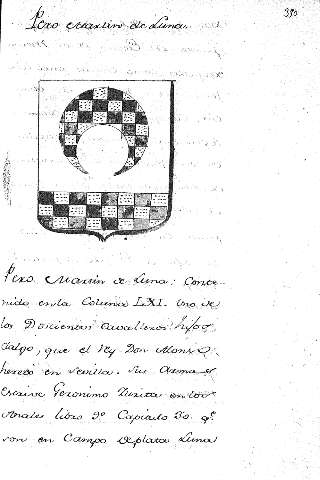 Pero Martin de Luna.
350
Pero Martin de Luna: Conte-
nido en la Coluna LXI. Uno de
los Doscientos Cavalleros hijos
dalgo, que el Rey Don Alonso
heredó en Sevilla. Sus Armas
escrive Geronimo Zurita en los
Anales libro 9º Capitulo 30. qe.
son en Campo de plata Luna